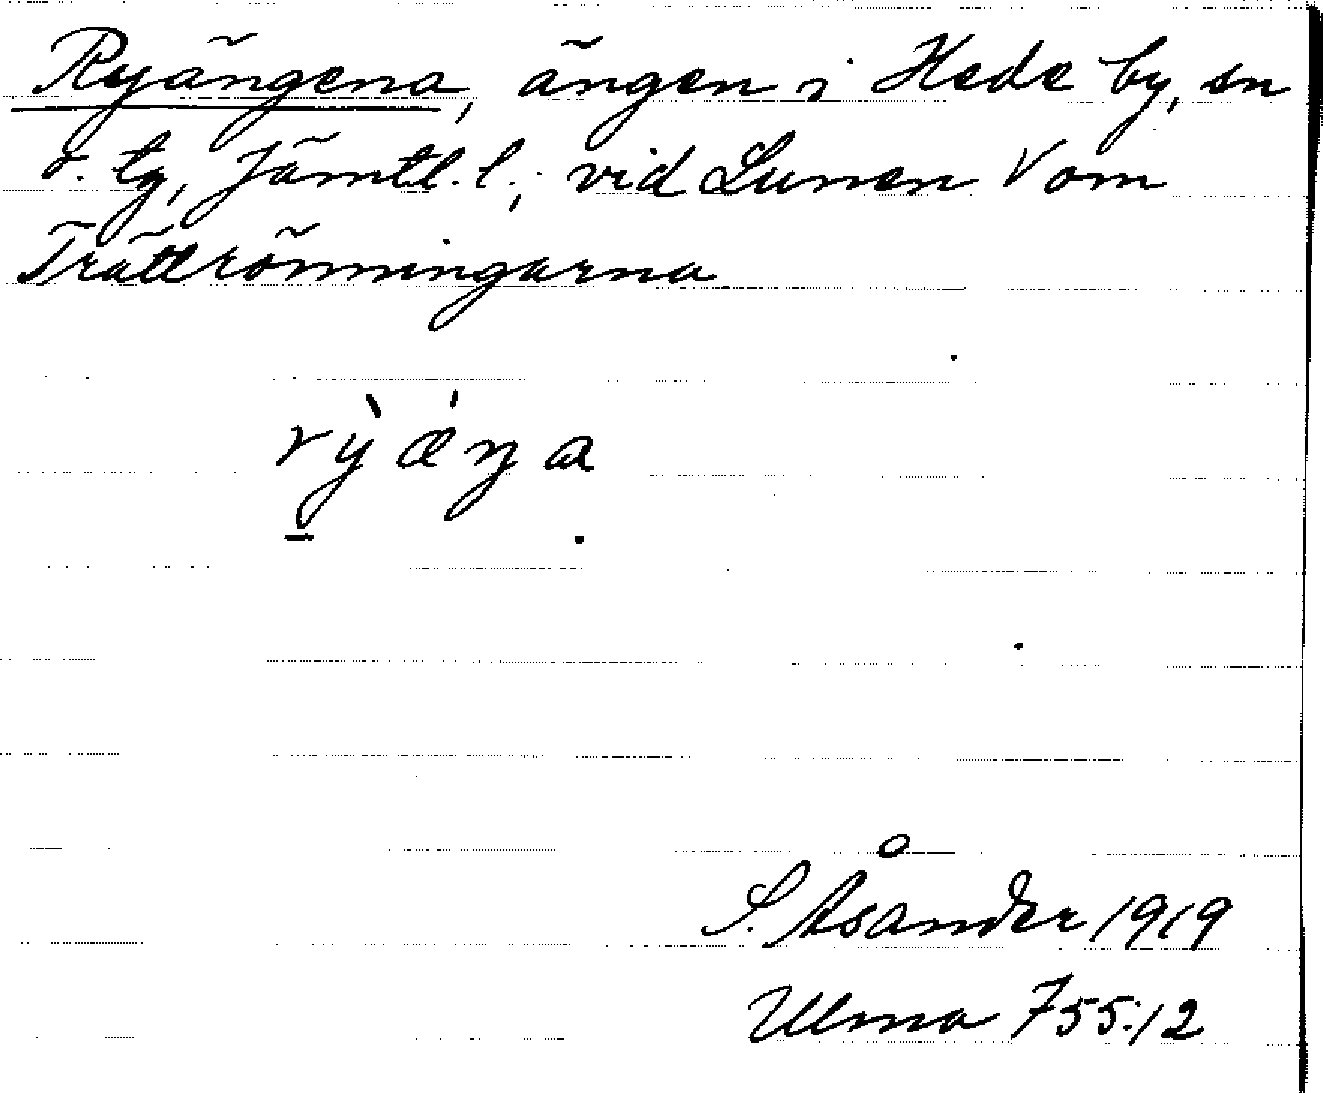 Ryängena, ängen i Hede by, sn
o. tg, Jämtl. l., vid Lunen V om
Trättrönningarna
rỳæ̀ŋa
S. Åsander 1919
Ulma 755:12